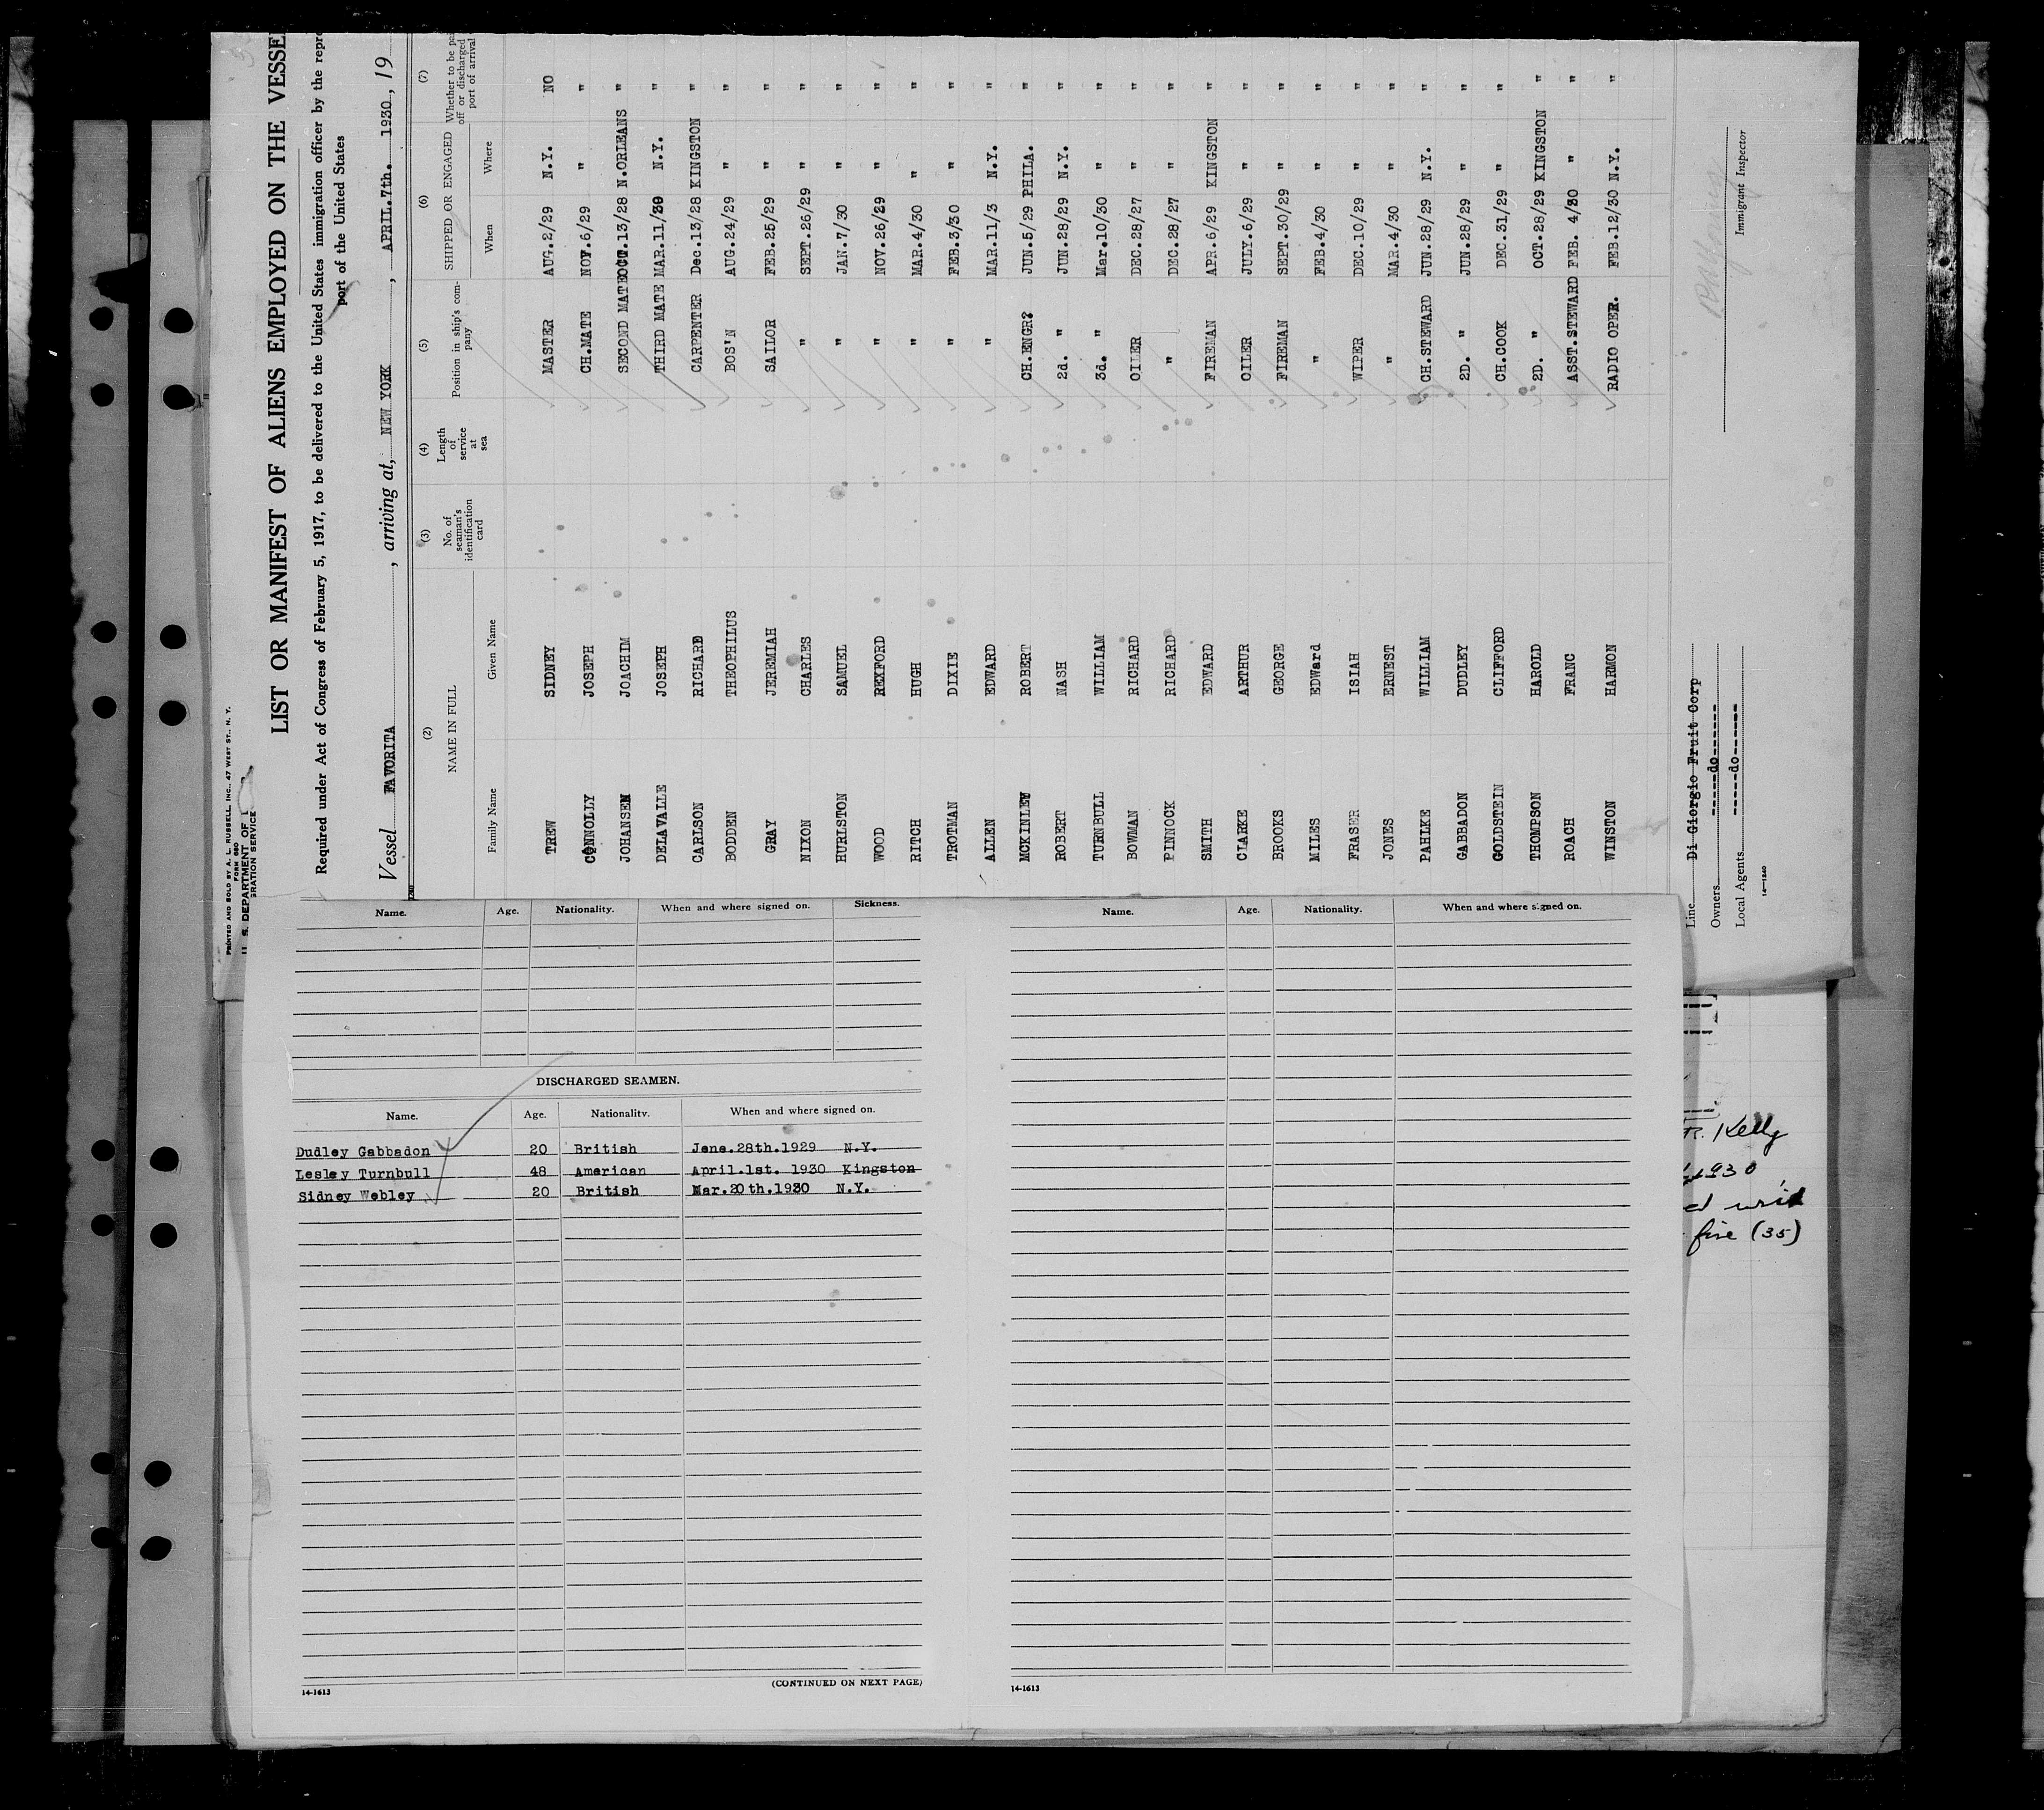 PRINTED AND SOLD BY A. L. RUSSELL, INC., 47 WEST ST., N. Y.
FORM 680
U. S. DEPARTMENT OF L
GRATION SERVICE
LIST OR MANIFEST OF ALIENS EMPLOYED ON THE VESSEL
Required under Act of Congress of February 5, 1917, to be delivered to the United States immigration officer by the repre
port of the United States
Vessel FAVORITA , arriving at, NEW YORK , APRIL.7th. 1930 , 19
(2) (3) (4) (5) (6) (7)
NAME IN FULL No. of seaman's identification card Length of service at sea Position in ship's company SHIPPED OR ENGAGED Whether to be pai off or discharged port of arrival
Family Name Given Name When Where
TREW SIDNEY MASTER AUG.2/29 N.Y. NO
CONNOLLY JOSEPH CH.MATE NOV.6/29 " "
JOHANSEN JOACHIM SECOND MATE OCT.13/28 N.ORLEANS "
DELAVALLE JOSEPH THIRD MATE MAR.11/30 N.Y. "
CARLSON RICHARD CARPENTER Dec.13/28 KINGSTON "
BODDEN THEOPHILUS BOS'N AUG.24/29 " "
GRAY JEREMIAH SAILOR FEB.25/29 " "
NIXON CHARLES " SEPT.26/29 " "
HURLSTON SAMUEL " JAN.7/30 " "
WOOD REXFORD " NOV.26/29 " "
RITCH HUGH " MAR.4/30 " "
TROTMAN DIXIE " FEB.3/30 " "
ALLEN EDWARD " MAR.11/3 N.Y. "
MCKINLEY ROBERT CH.ENGR? JUN.5/29 PHILA. "
ROBERT NASH 2d. " JUN.28/29 N.Y. "
TURNBULL WILLIAM 3d. " Mar.10/30 " "
BOWMAN RICHARD OILER DEC.28/27 " "
PINNOCK RICHARD " DEC.28/27 " "
SMITH EDWARD FIREMAN APR.6/29 KINGSTON "
CLARKE ARTHUR OILER JULY.6/29 " "
BROOKS GEORGE FIREMAN SEPT.30/29 " "
MILES EDWard " FEB.4/30 " "
FRASER ISIAH WIPER DEC.10/29 " "
JONES ERNEST " MAR.4/30 " "
PAHLKE WILLIAM CH.STEWARD JUN.28/29 N.Y. "
GABBADON DUDLEY 2D. " JUN.28/29 " "
GOLDSTEIN CLIFFORD CH.COOK DEC.31/29 " "
THOMPSON HAROLD 2D. " OCT.28/29 KINGSTON "
ROACH FRANC ASST.STEWARD FEB. 4/30 " "
WINSTON HARMON RADIO OPER. FEB.12/30 N.Y. "
Line Di Giorgio Fruit Corp
Owners -----do------
Local Agents -----do------
Immigrant Inspector
14-1240
Name. Age. Nationality. When and where signed on. Sickness.
DISCHARGED SEAMEN.
Name. Age. Nationality. When and where signed on.
Dudley Gabbadon 20 British Jene.28th.1929 N.Y.
Lesley Turnbull 48 American April.1st. 1930 Kingston
Sidney Webley 20 British Mar.20th.1930 N.Y.
(CONTINUED ON NEXT PAGE)
14-1613
Name. Age. Nationality. When and where signed on.
14-1613
R. Kelly
1930
fine (35)